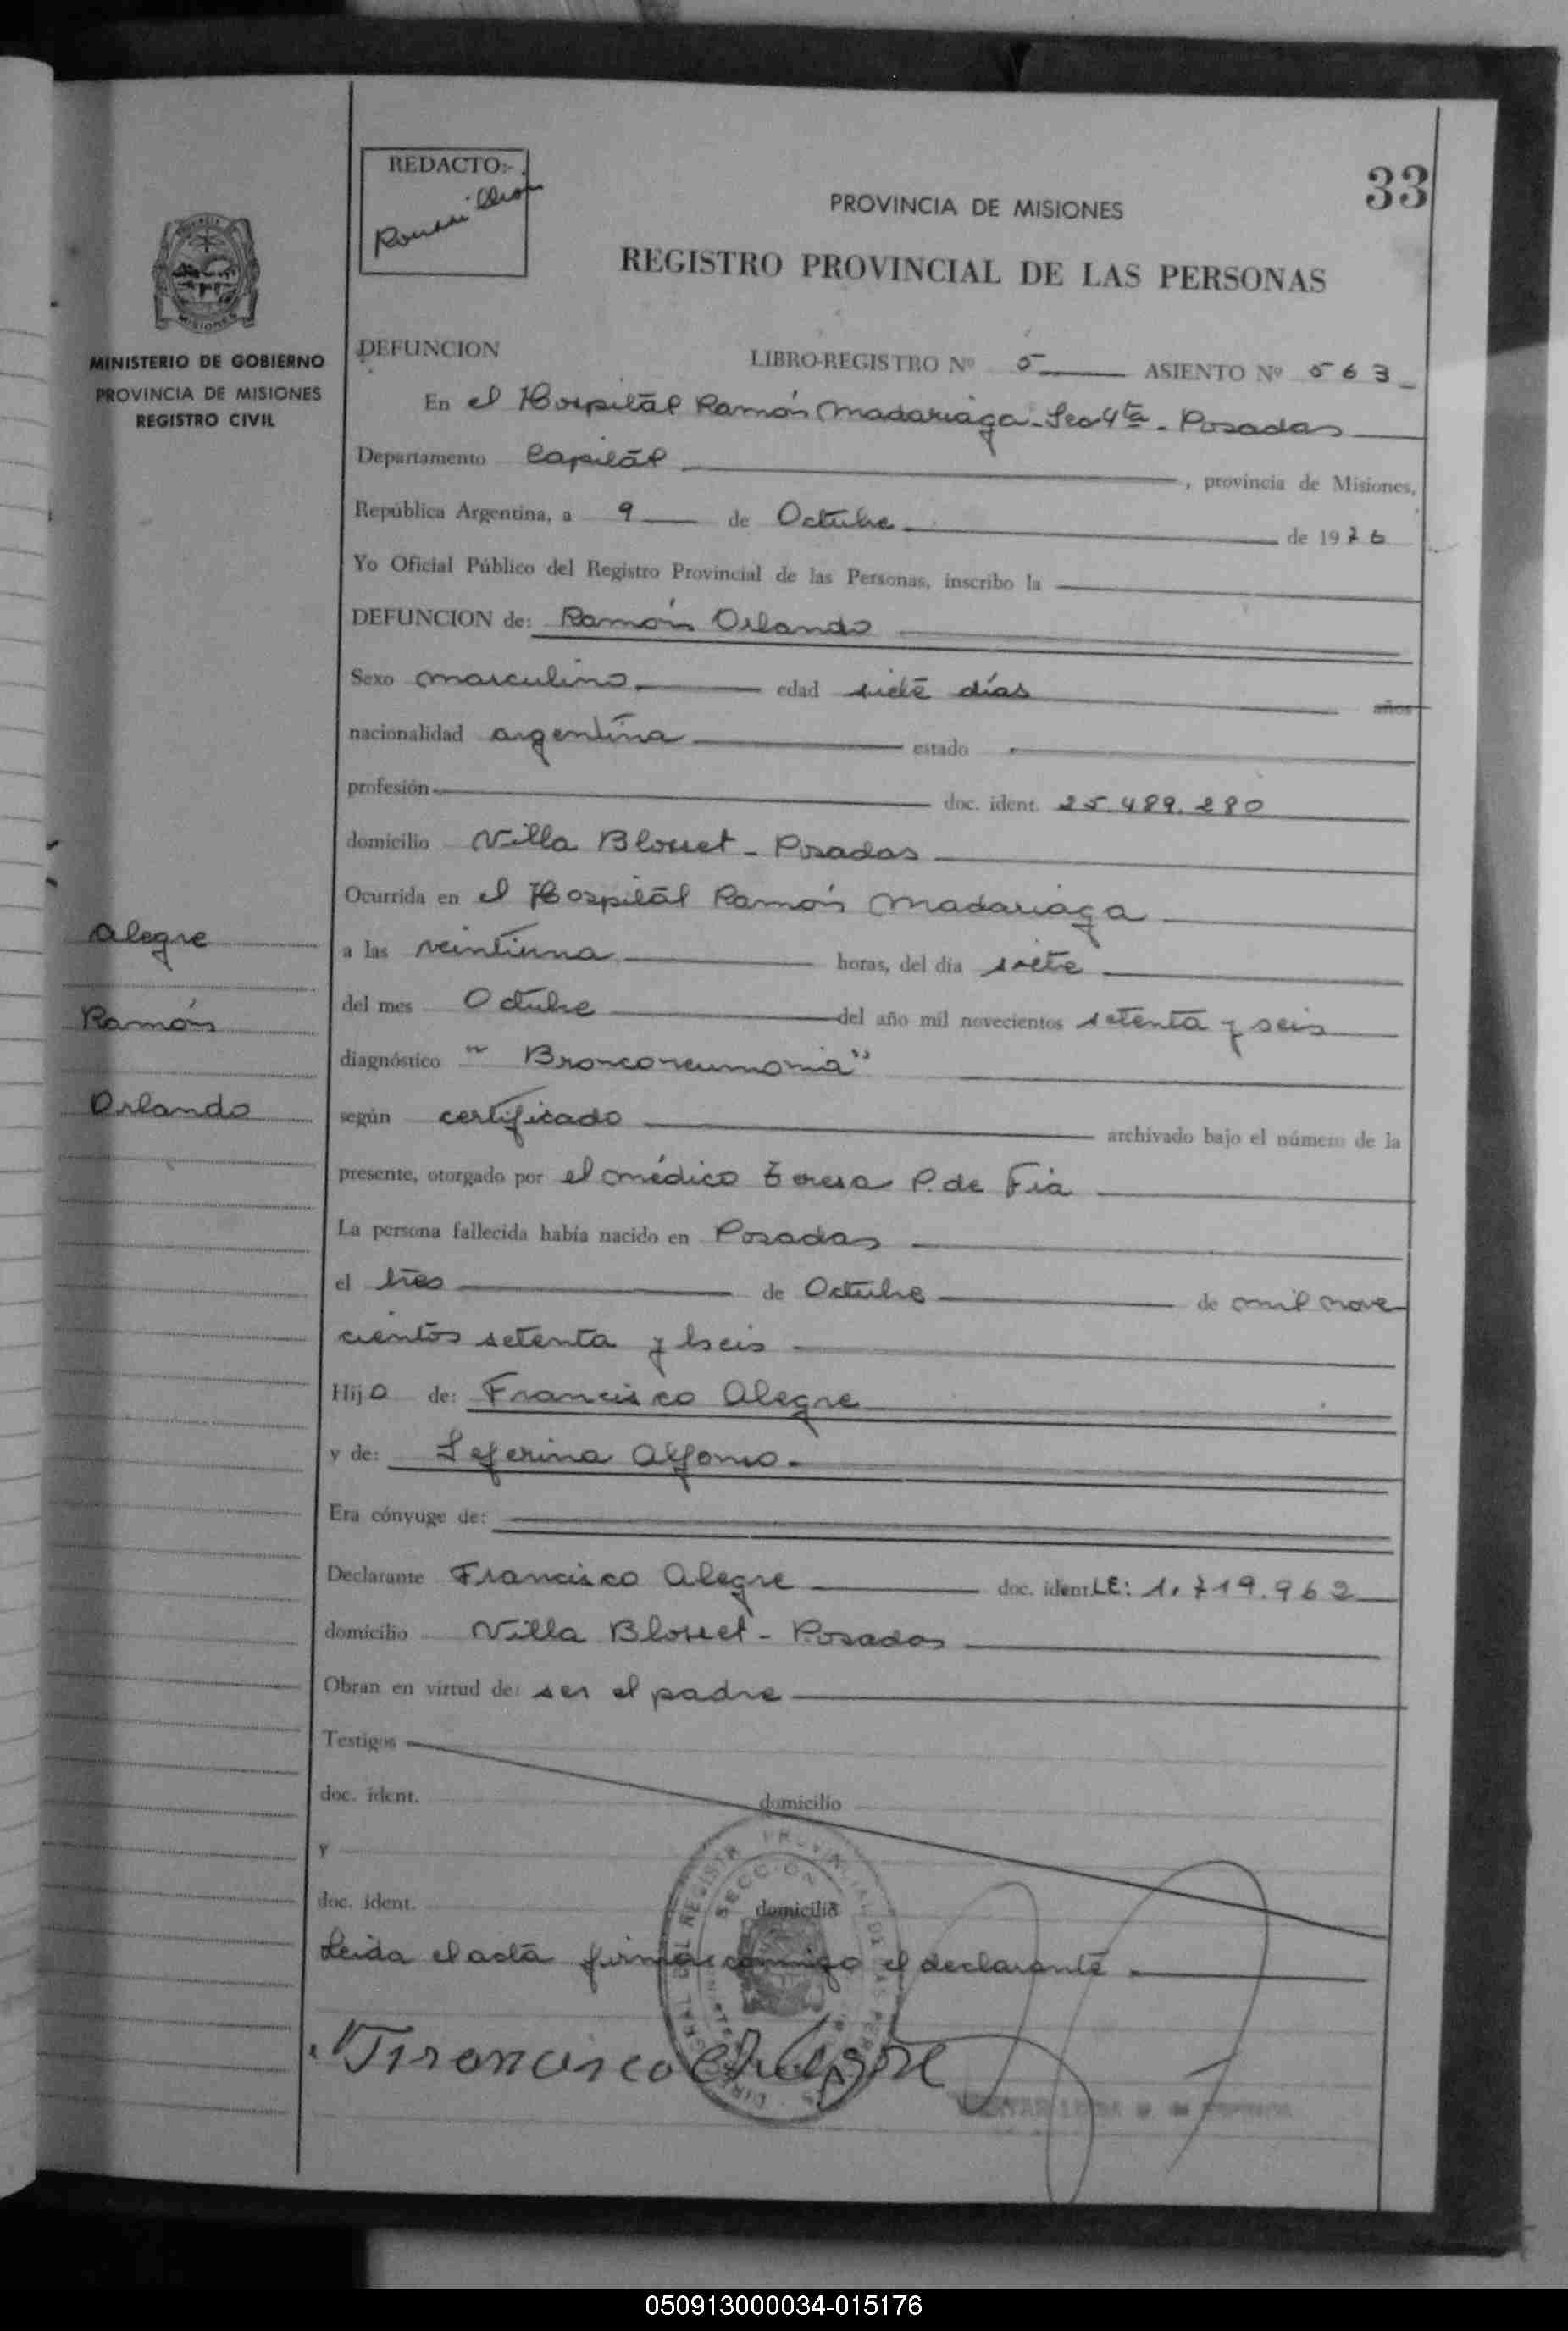 33
REDACTO:-
PROVINCIA DE MISIONES
REGISTRO PROVINCIAL DE LAS PERSONAS
MISIONES
MINISTERIO DE GOBIERNO
PROVINCIA DE MISIONES
REGISTRO CIVIL
DEFUNCION LIBRO-REGISTRO Nº 5 ASIENTO Nº 563
En el Hospital Ramón Madariaga - Sec 4ta - Posadas
Departamento Capital, provincia de Misiones,
República Argentina, a 9 de Octubre de 1976
Yo Oficial Público del Registro Provincial de las Personas, inscribo la
DEFUNCION de: Ramón Orlando
Sexo masculino edad siete días años
nacionalidad argentina estado
profesión doc. ident. 25.489.280
domicilio Villa Blosset - Posadas
Ocurrida en el Hospital Ramón Madariaga
a las veintiuna horas, del día siete
del mes Octubre del año mil novecientos setenta y seis
diagnóstico "Bronconeumonia"
según certificado archivado bajo el número de la
presente, otorgado por el médico Teresa P. de Fia
La persona fallecida había nacido en Posadas
el tres de Octubre de mil nove
cientos setenta y seis
Hijo de: Francisco Alegre
y de: Seferina Alfonso.
Era cónyuge de:
Declarante Francisco Alegre doc. ident. LE: 1.719.962
domicilio Villa Blosset - Posadas
Obran en virtud de: ser el padre
Testigos
doc. ident. domicilio
y
doc. ident. domicilio
Leida el acta firma conmigo el declarante
Francisco Alegre
Alegre
Ramón
Orlando
050913000034-015176